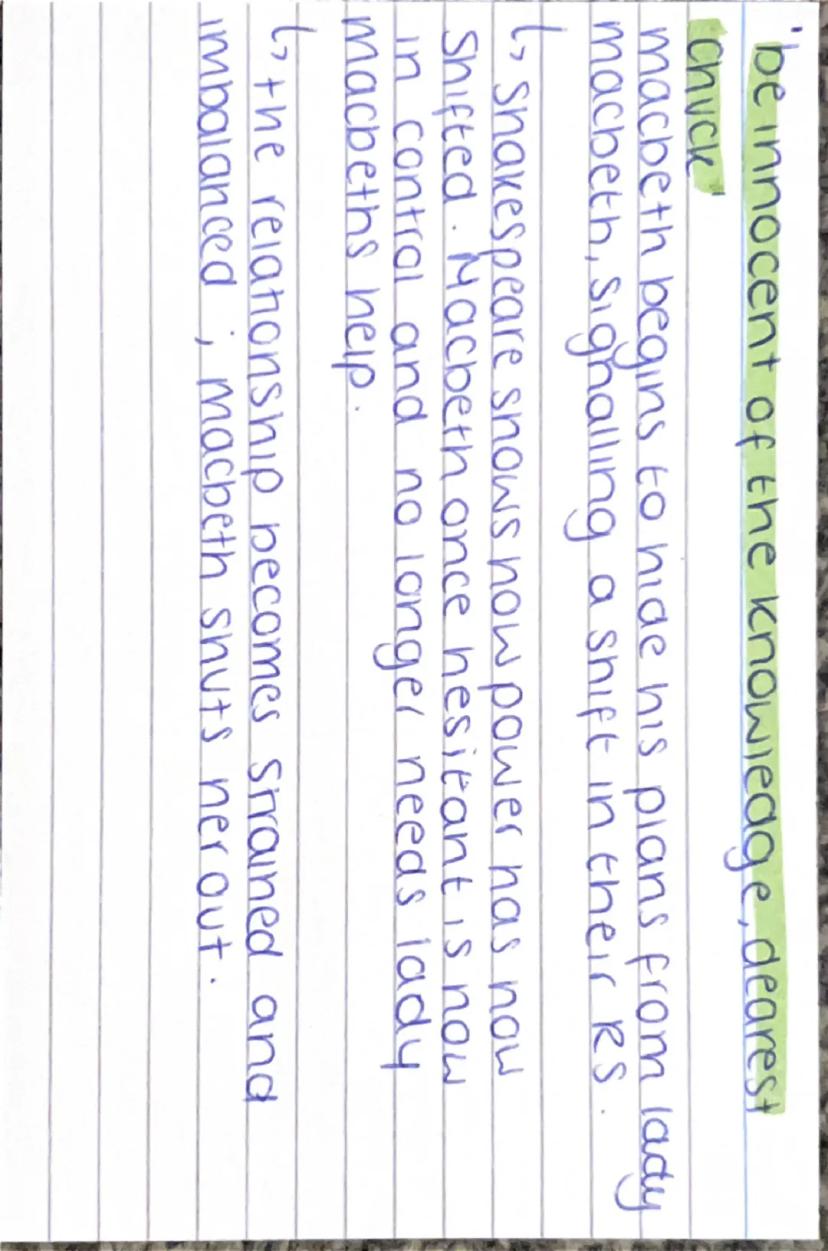 "be innocent of the knowledge, dearest
chuck"
macbeth begins to hide his plans from lady
macbeth, signalling a shift in their RS.
↳ Shakespeare shows how power has now
Shifted. Macbeth once hesitant is now
in control and no longer needs lady
macbeths help.
↳ the relationship becomes strained and
imbalanced ; macbeth shuts her out.